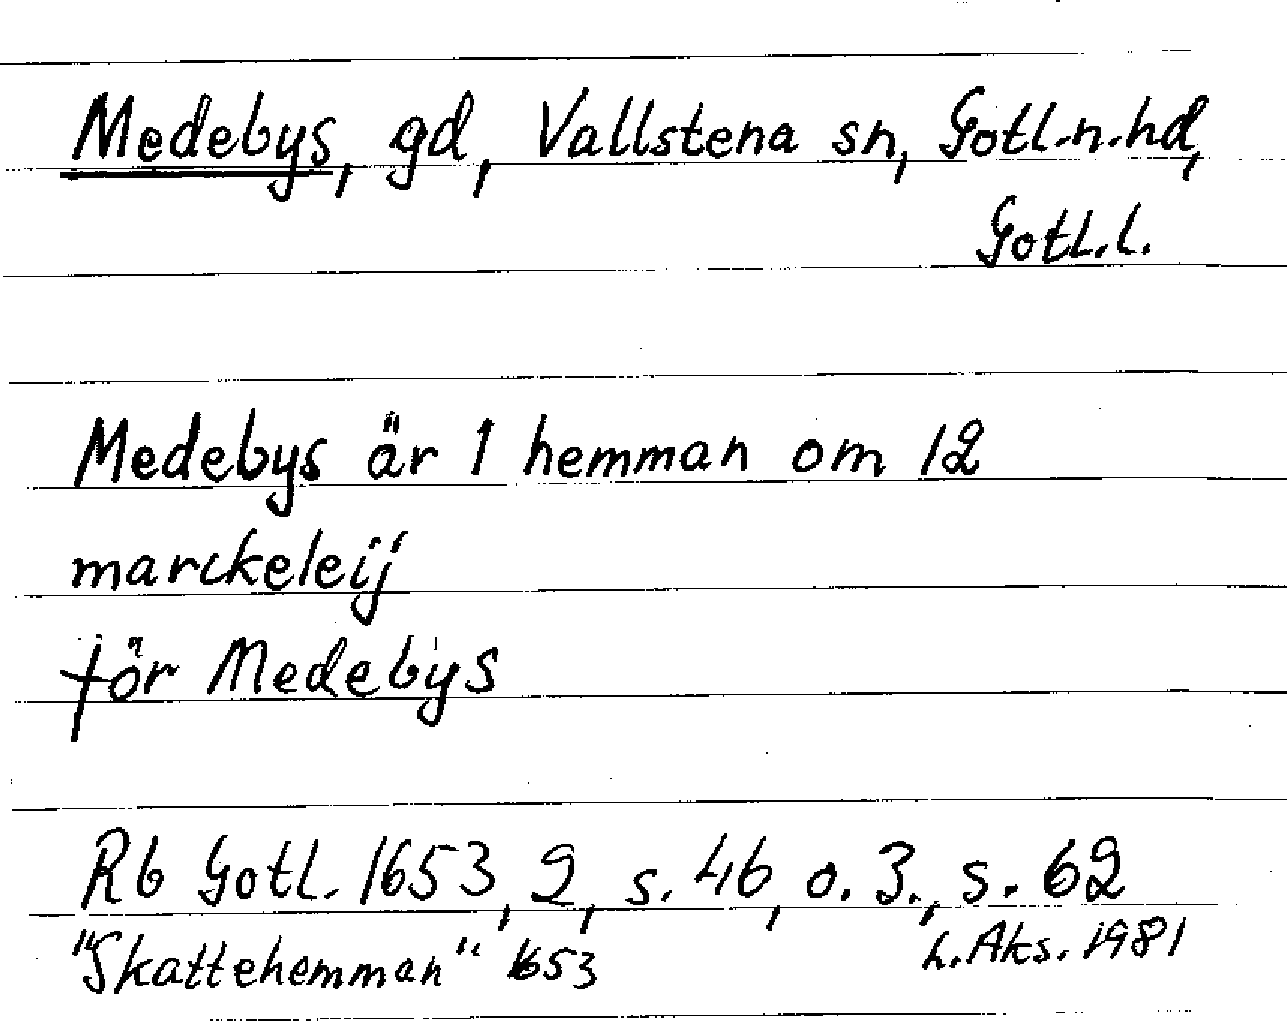 Medebys, gd, Vallstena sn, Gotl.n.hd,
Gotl.l.
Medebys är 1 hemman om 12
marckeleij
för Medebys
Rb Gotl. 1653, 2, s. 46, o. 3., s. 62
"Skattehemman" 1653
L. Aks. 1981